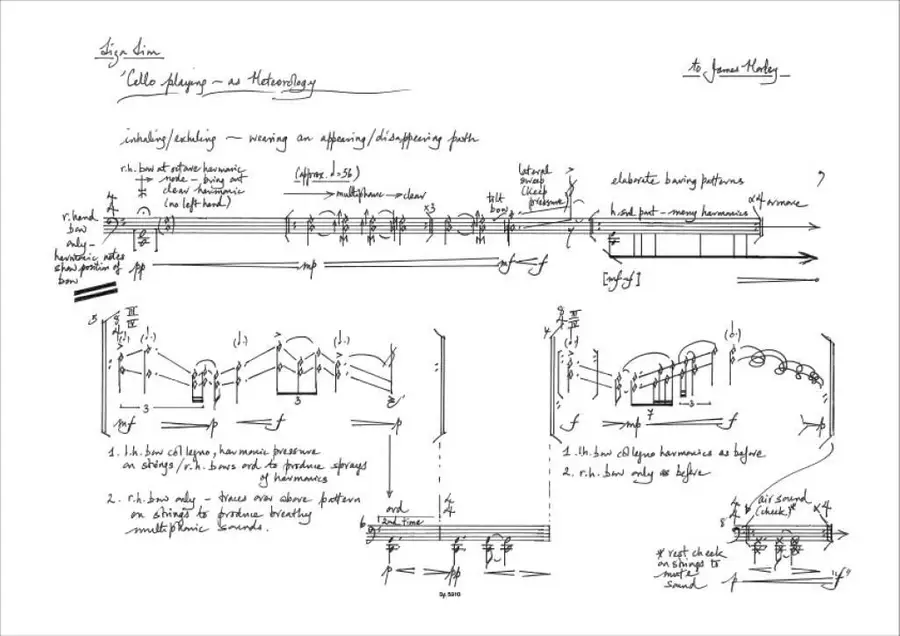 Liza Lim
'Cello playing – as Meteorology
to James Morley
inhaling/exhaling — wearing an appearing/disappearing path
r.h. bow at octave harmonic
node – bring out
clear harmonic
(no left hand)
(approx. ♩=56)
→ multiphonic → clear
x3
tilt
bow
lateral
sweep
(keep
pressure)
elaborate bowing patterns
h.snd part – many harmonics
x4 or more
r.hand
bow
only –
harmonic notes
show position of
bow
4
4
pp
mp
mf f
[mf-f]
5
III
IV
3
3
mf p f p
1. l.h. bow col legno, harmonic pressure
on strings/r.h. bows ord to produce sprays
of harmonics
2. r.h. bow only – traces over above pattern
on strings to produce breathy
multiphonic sounds.
III
IV
7
3
f mp f p
1. l.h. bow col legno harmonics as before
2. r.h. bow only as before
6
ord
2nd time
4
4
p pp
8
4
4
air sound
(cheek)*
x4
* rest cheek
on strings to
mute
sound
p "f"
Sy. 5010